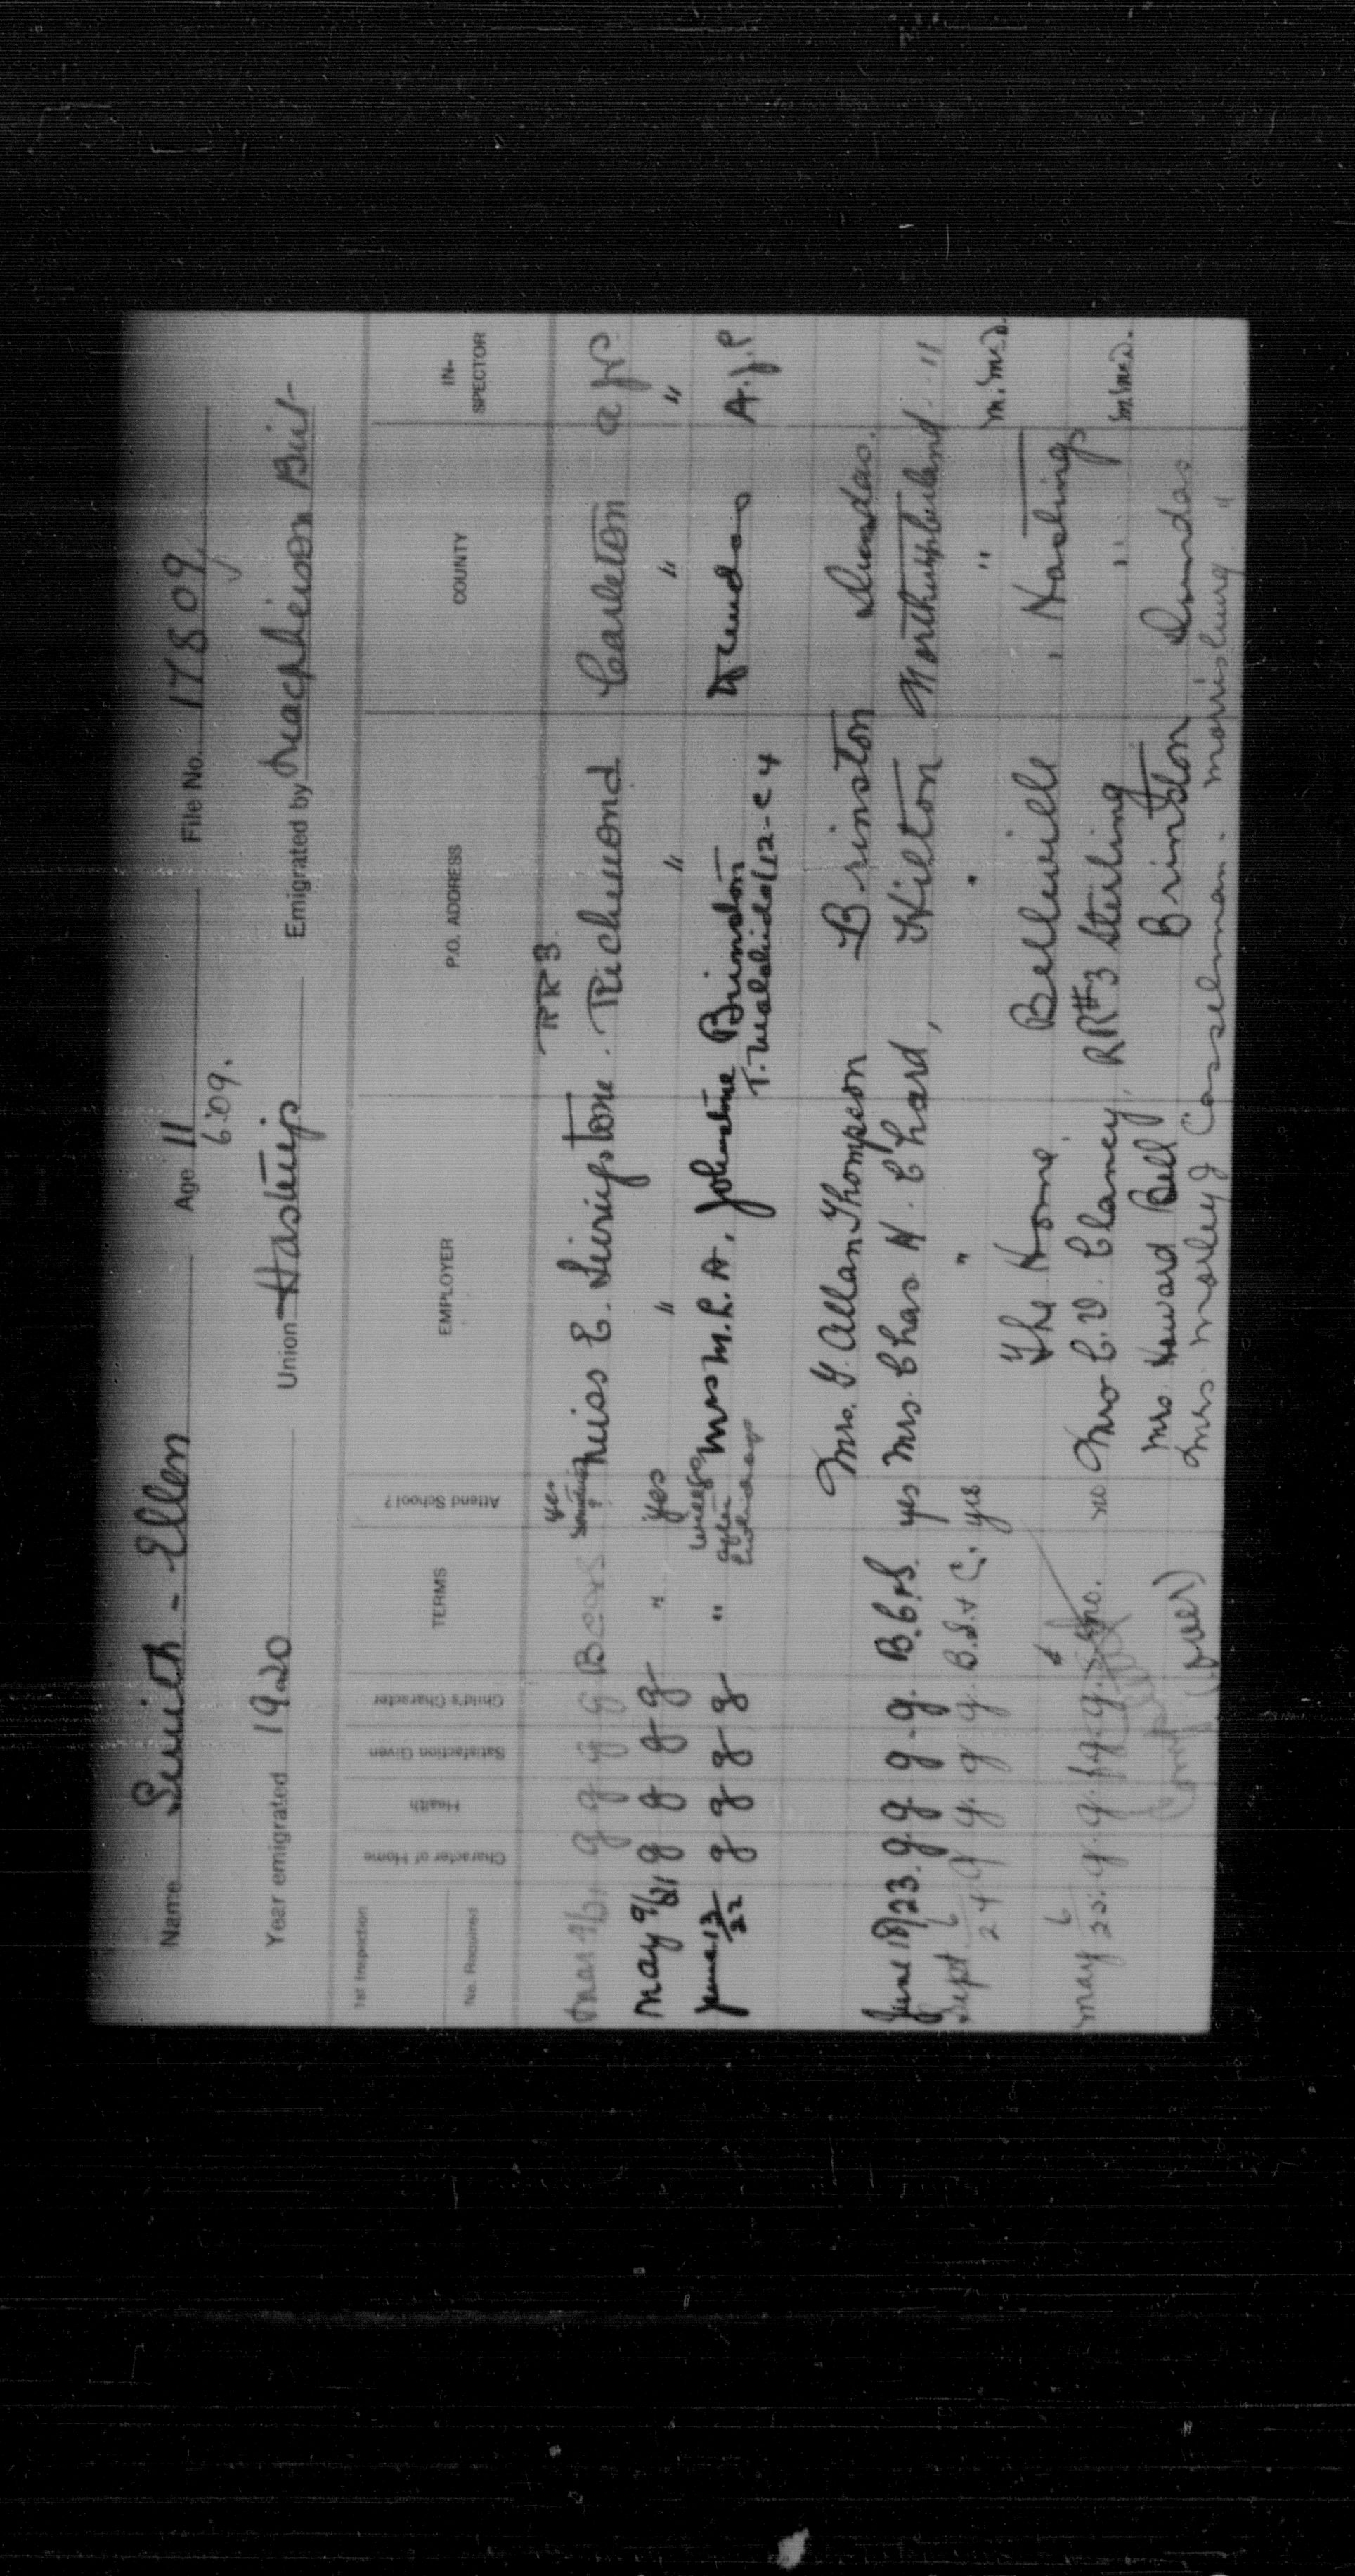 Name Smith - Ellen Age 11 File No. 17809
6.09.
Year emigrated 1920 Union Hastings Emigrated by Macpherson Birt
1st Inspection
No. Required
Character of Home
Health
Satisfaction Given
Child's Character
TERMS
Attend School?
EMPLOYER
P.O. ADDRESS
COUNTY
IN-SPECTOR
yes RR3
Mar 9/21 g g g g B C & S Miss E. Livingstone. Richmond Carleton a J P.
May 9/21 g g g g " yes " " " "
June 13/22 g g g g " will go after holidays Mrs M. L. A. Johnstone Brinston Dundas A. J. P
T. Matilda L12-C4
Mrs. G. Allan Thompson Brinston Dundas.
June 18/23. g. g. g. g. B.C.&S. yes Mrs. Chas H. Chard, Hilton Northumberland. "
Sept. 6/24. g g. g g. B.S. & C. yes " " " m. mcd.
The Home. Belleville , Hastings
May 6/25. g. g. f.g. g. no. no Mrs C. V. Clancy, RR#3 Sterling " m. mcd.
(over) Mrs. Howard Bell Brinston Dundas
Mrs. Morley J Casselman. Morrisburg. "